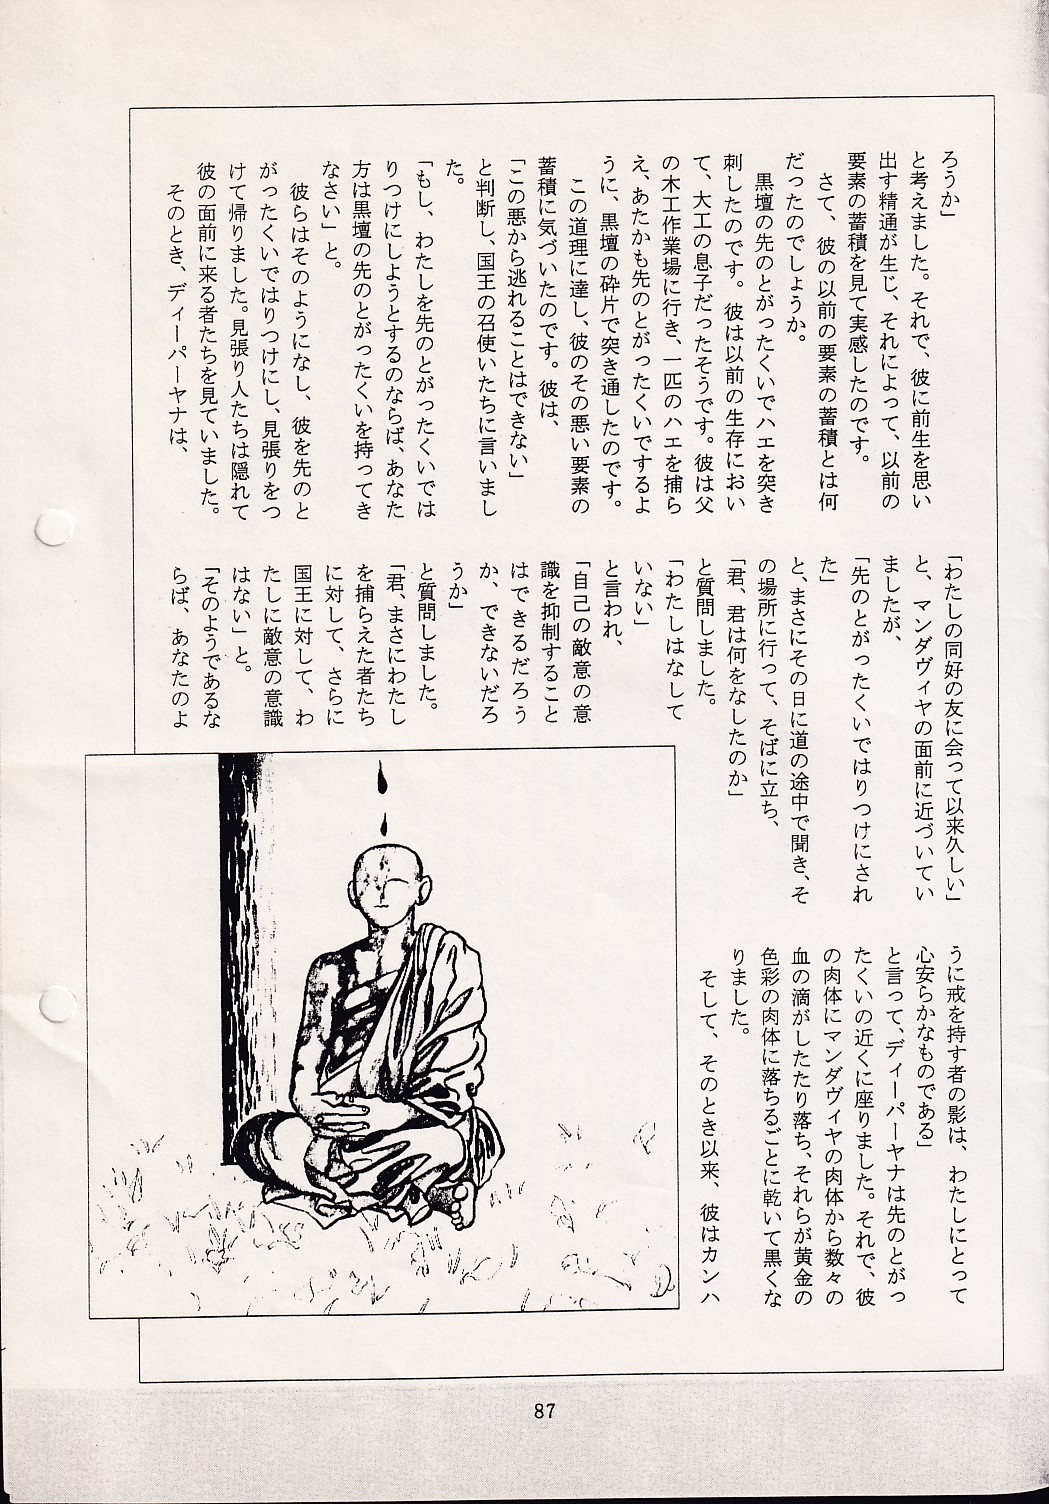 ろうか」
と考えました。それで、彼に前生を思い
出す精通が生じ、それによって、以前の
要素の蓄積を見て実感したのです。
さて、彼の以前の要素の蓄積とは何
だったのでしょうか。
黒壇の先のとがったくいでハエを突き
刺したのです。彼は以前の生存におい
て、大工の息子だったそうです。彼は父
の木工作業場に行き、一匹のハエを捕ら
え、あたかも先のとがったくいでするよ
うに、黒壇の砕片で突き通したのです。
この道理に達し、彼のその悪い要素の
蓄積に気づいたのです。彼は、
「この悪から逃れることはできない」
と判断し、国王の召使いたちに言いまし
た。
「もし、わたしを先のとがったくいでは
りつけにしようとするのならば、あなた
方は黒壇の先のとがったくいを持ってき
なさい」と。
彼らはそのようになし、彼を先のと
がったくいではりつけにし、見張りをつ
けて帰りました。見張り人たちは隠れて
彼の面前に来る者たちを見ていました。
そのとき、ディーパーヤナは、
「わたしの同好の友に会って以来久しい」
と、マンダヴィヤの面前に近づいてい
ましたが、
「先のとがったくいではりつけにされ
た」
と、まさにその日に道の途中で聞き、そ
の場所に行って、そばに立ち、
「君、君は何をなしたのか」
と質問しました。
「わたしはなして
いない」
と言われ、
「自己の敵意の意
識を抑制すること
はできるだろう
か、できないだろ
うか」
と質問しました。
「君、まさにわたし
を捕らえた者たち
に対して、さらに
国王に対して、わ
たしに敵意の意識
はない」と。
「そのようであるな
らば、あなたのよ
うに戒を持する者の影は、わたしにとって
心安らかなものである」
と言って、ディーパーヤナは先のとがっ
たくいの近くに座りました。それで、彼
の肉体にマンダヴィヤの肉体から数々の
血の滴がしたたり落ち、それらが黄金の
色彩の肉体に落ちるごとに乾いて黒くな
りました。
そして、そのとき以来、彼はカンハ
87